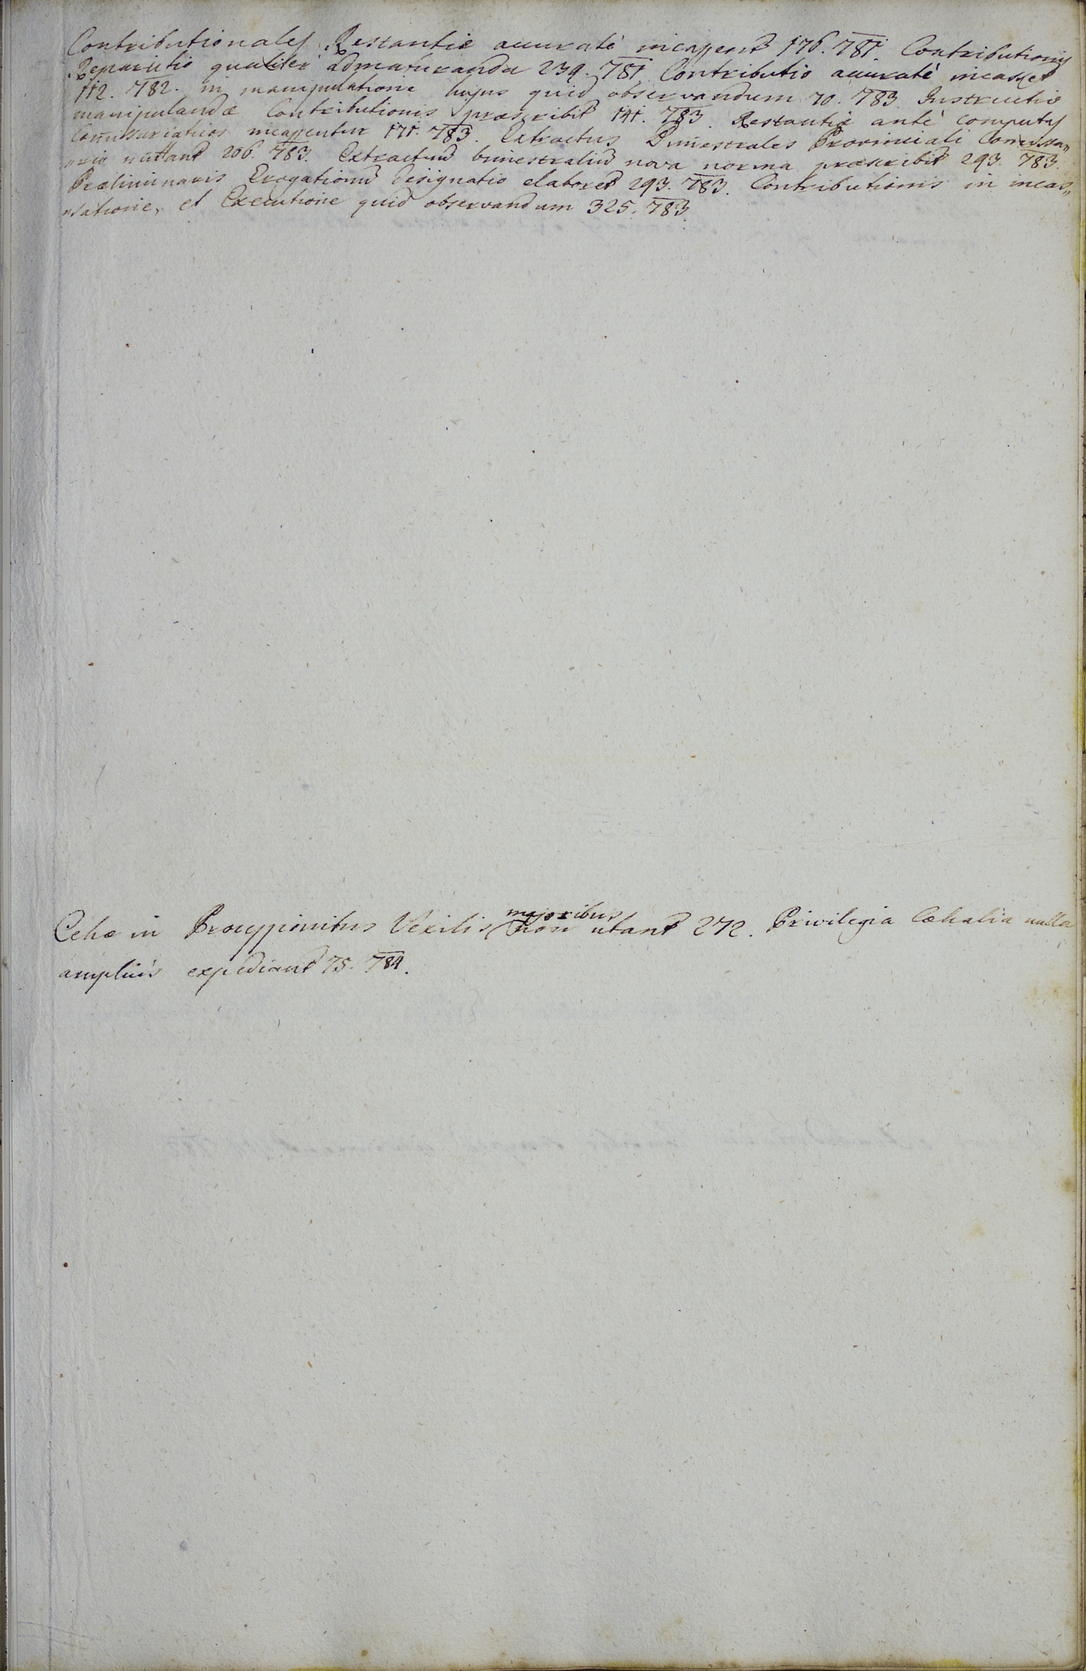 Contributionales Restantiæ accuratè incassent 176. 781. Contributionis
Repartitio qualiter admaturanda 239. 781. Contributio accuratè incasset
112. 782. in manipulatione hujus quid observandum 70. 783. Instructio
manipulandæ Contributionis præscribit 141. 783. Restantiæ antè computs
Comissariaticos incassentur 171. 783. Extractus Bimestrales Provinciali Comissa„
rio mittant 206. 783. Extractuum bimestralium nova norma præscribit 293. 783.
Præliminaris Erogationum designatio elaboret 293. 783. Contributionis in incas„
satione, et Executione quid observandum 325. 783.
Cehæ in Processionibus Vexilis majoribus non utant 272. Privilegia Cæhalia nulla
ampliùs expediant 75. 784.